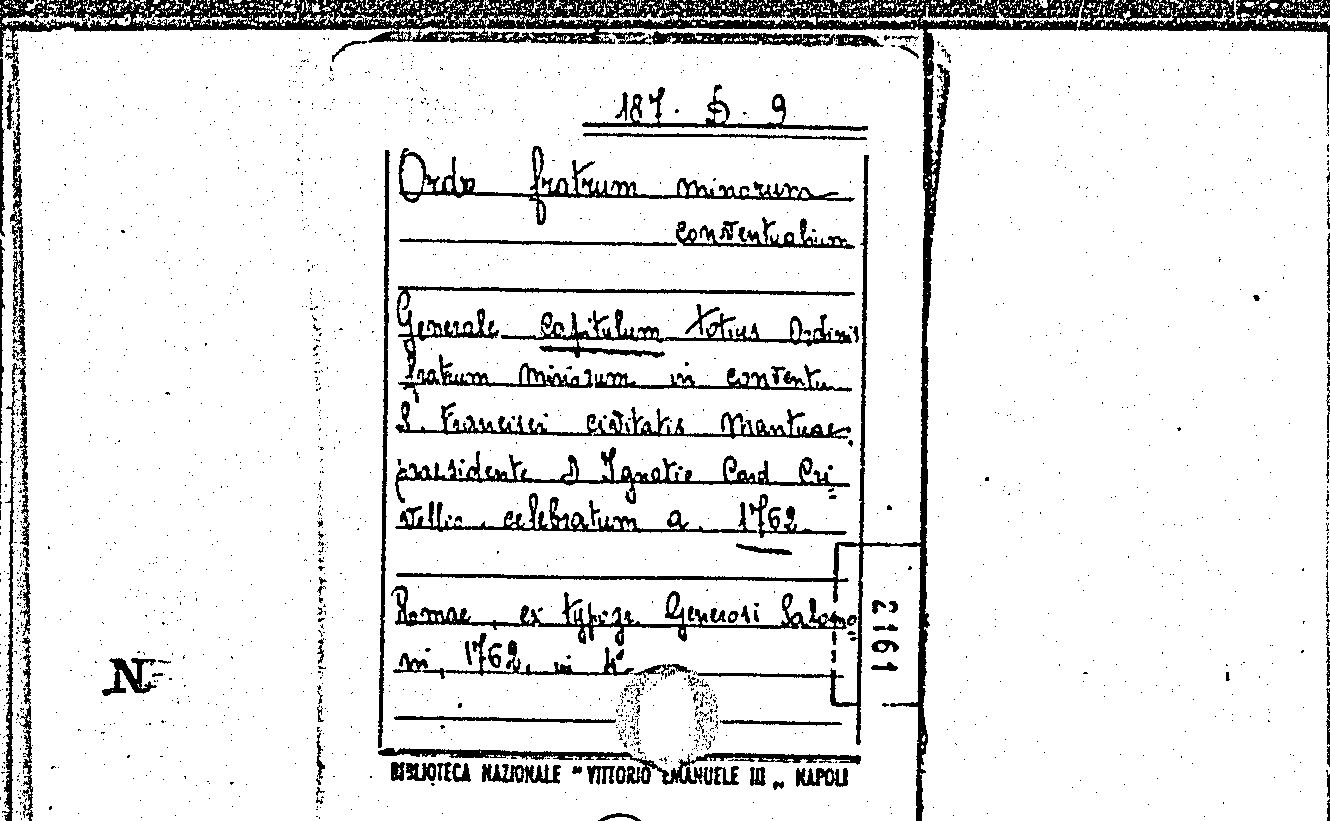 187. D. 9
Ordo fratrum minorum
conventualium
Generale capitulum totius Ordinis
fratrum Minorum in conventu
S. Francisci civitatis Mantuae,
praesidente D Ignatio Card Cri=
vellio celebratum a. 1762
Romae, ex typogr. Generosi Salomo=
ni, 1762, in 4°
2161
N
BIBLIOTECA NAZIONALE " VITTORIO EMANUELE III „ NAPOLI